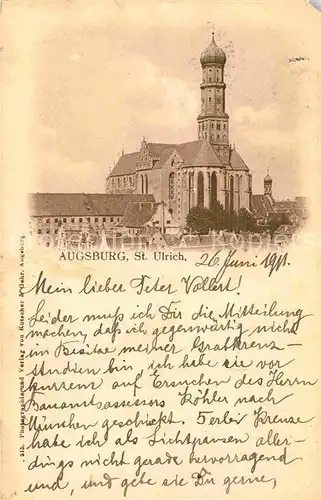 AUGSBURG, St. Ulrich.
26. Juni 1911.
Mein lieber Peter Vollert!
Leider muß ich Dir die Mitteilung
machen, daß ich gegenwärtig nicht
im Besitze meiner Grabkreuz-
studien bin, ich habe sie vor
kurzem auf Ersuchen des Herrn
Bauamtsassessors Köhler nach
München geschickt. 5erlei Kreuze
habe ich als Lichtpausen aller-
dings nicht gerade hervorragend
und, und gebe sie Dir gerne,
213. Photographie und Verlag von Kutscher & Gehr, Augsburg.